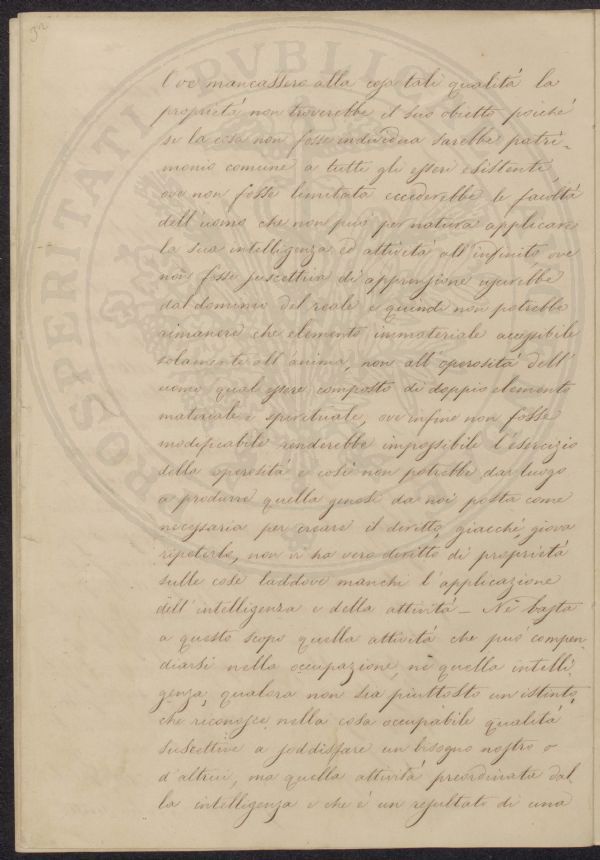 32
Ove mancassero alla cosa tali qualità la
proprietà non troverebbe il suo obietto poiché
se la cosa non fosse individua sarebbe patri-
monio comune a tutti gli esseri esistenti
ove non fosse limitata eccederebbe le facoltà
dell'uomo che non può per natura applicare
la sua intelligenza ed attività all'infinito ove
non fosse suscettiva di apprensione uscirebbe
dal dominio del reale e quindi non potrebbe
rimanere che elemento immateriale accessibile
solamente all'anima, non all'operosità dell'
uomo qual essere composto di doppio elemento
materiale e spirituale, ove infine non fosse
modificabile renderebbe impossibile l'esercizio
della operosità e così non potrebbe dar luogo
a produrre quella genesi da noi posta come
necessaria per creare il diritto, giacché, giova
ripeterlo, non vi ha vero diritto di proprietà
sulle cose laddove manchi l'applicazione
dell'intelligenza e della attività – Né basta
a questo scopo quella attività che può compen
diarsi nella occupazione, né quella intelli
genza, qualora non sia piuttosto un istinto,
che riconosce nella cosa occupabile qualità
suscettive a soddisfare un bisogno nostro o
d'altrui, ma quella attività preordinata dal
la intelligenza e che è un resultato di una
PROSPERITATI PVBLICAE